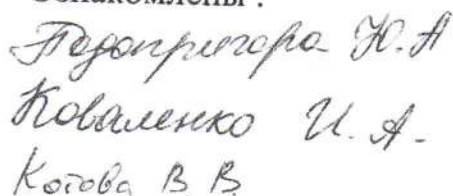 Ознакомлены :
Подопригора Ю.А
Коваленко И. А.
Котова В В.